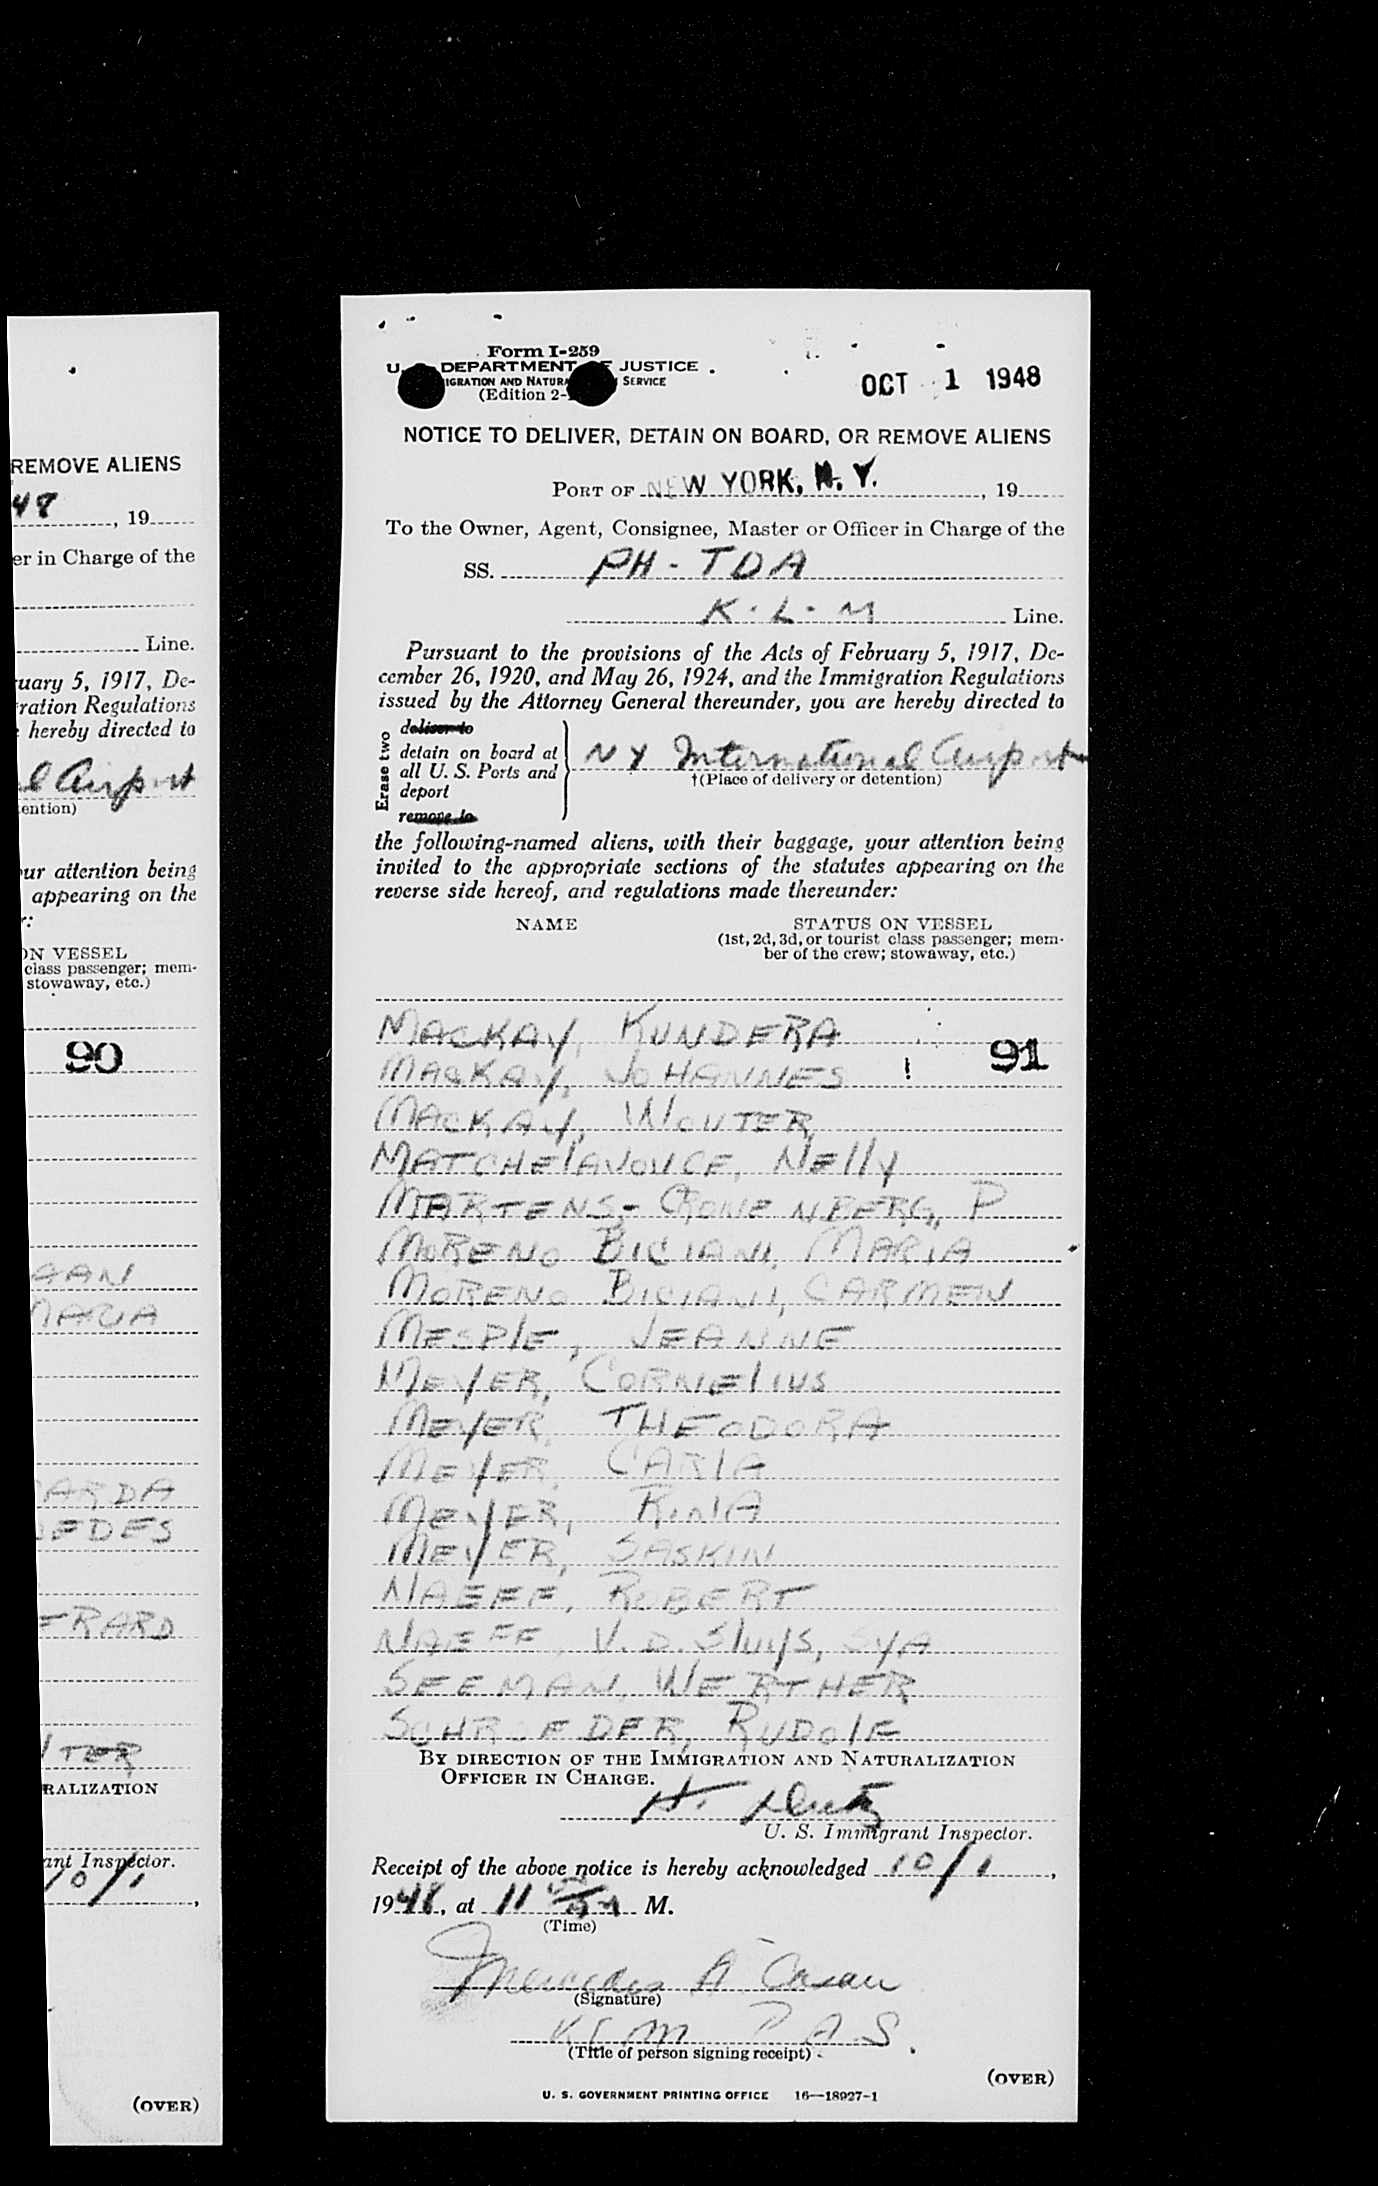 REMOVE ALIENS
48, 19
er in Charge of the
Line.
uary 5, 1917, De-
ration Regulations
hereby directed to
l Airport
ention)
ur attention being
appearing on the
ON VESSEL
class passenger; mem-
stowaway, etc.)
90
RALIZATION
ant Inspector.
10/1,
(OVER)
Form I-259
U. DEPARTMENT JUSTICE
IGRATION AND NATURA SERVICE
(Edition 2-
OCT 1 1948
NOTICE TO DELIVER, DETAIN ON BOARD, OR REMOVE ALIENS
PORT OF NEW YORK, N. Y., 19
To the Owner, Agent, Consignee, Master or Officer in Charge of the
SS. PH-TDA
K.L.M Line.
Pursuant to the provisions of the Acts of February 5, 1917, De-
cember 26, 1920, and May 26, 1924, and the Immigration Regulations
issued by the Attorney General thereunder, you are hereby directed to
Erase two
deliver to
detain on board at
all U. S. Ports and
deport
remove to
NY International Airport
†(Place of delivery or detention)
the following-named aliens, with their baggage, your attention being
invited to the appropriate sections of the statutes appearing on the
reverse side hereof, and regulations made thereunder:
NAME STATUS ON VESSEL
(1st, 2d, 3d, or tourist class passenger; mem-
ber of the crew; stowaway, etc.)
MACKAY, KUNDERA
91
MACKAY, JOHANNES
MACKAY, WOUTER
MATCHElAVOUCE, NEllY
MARTENS- CRONENBERG, P
MORENO BICIANI, MARIA
MORENO BICIANI, CARMEN
MESPlE, JEANNE
MEYER, CORNElIUS
MEYER, THEODORA
MEYER, CARlA
MEYER, RINIA
MEYER, SASKIN
NAEFF, ROBERT
NAEFF, V.D. SluYS, SYA
SEEMAN, WERTHER
SCHROEDER, RUDOlF
BY DIRECTION OF THE IMMIGRATION AND NATURALIZATION
OFFICER IN CHARGE.
U. S. Immigrant Inspector.
Receipt of the above notice is hereby acknowledged 10/1,
1948, at 11 M.
(Time)
Mercedes A
(Signature)
KLM P.A.S.
(Title of person signing receipt)
(OVER)
U. S. GOVERNMENT PRINTING OFFICE 16—18927-1